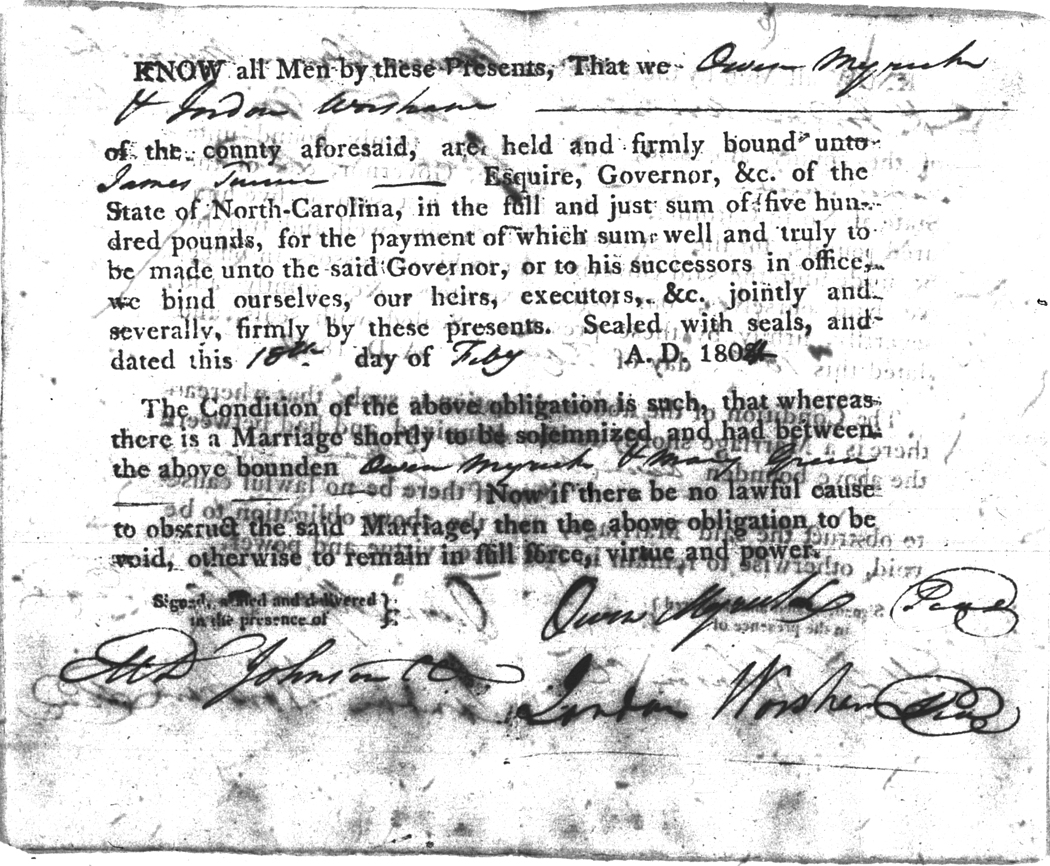 KNOW all Men by these Presents, That we Owen Myrick
& Jordon Worsham
of the county aforesaid, are held and firmly bound unto
James Turner Esquire, Governor, &c. of the
State of North-Carolina, in the full and just sum of five hun-
dred pounds, for the payment of which sum well and truly to
be made unto the said Governor, or to his successors in office,
we bind ourselves, our heirs, executors, &c. jointly and
severally, firmly by these presents. Sealed with seals, and
dated this 18th day of Feby A. D. 1804
The Condition of the above obligation is such, that whereas
there is a Marriage shortly to be solemnized and had between
the above bounden Owen Myrick & Mary Green
Now if there be no lawful cause
to obstruct the said Marriage, then the above obligation to be
void, otherwise to remain in full force, virtue and power.
Signed, sealed and delivered
in the presence of
Owen Myrick Seal
Johnson
Jordan Worsham Seal